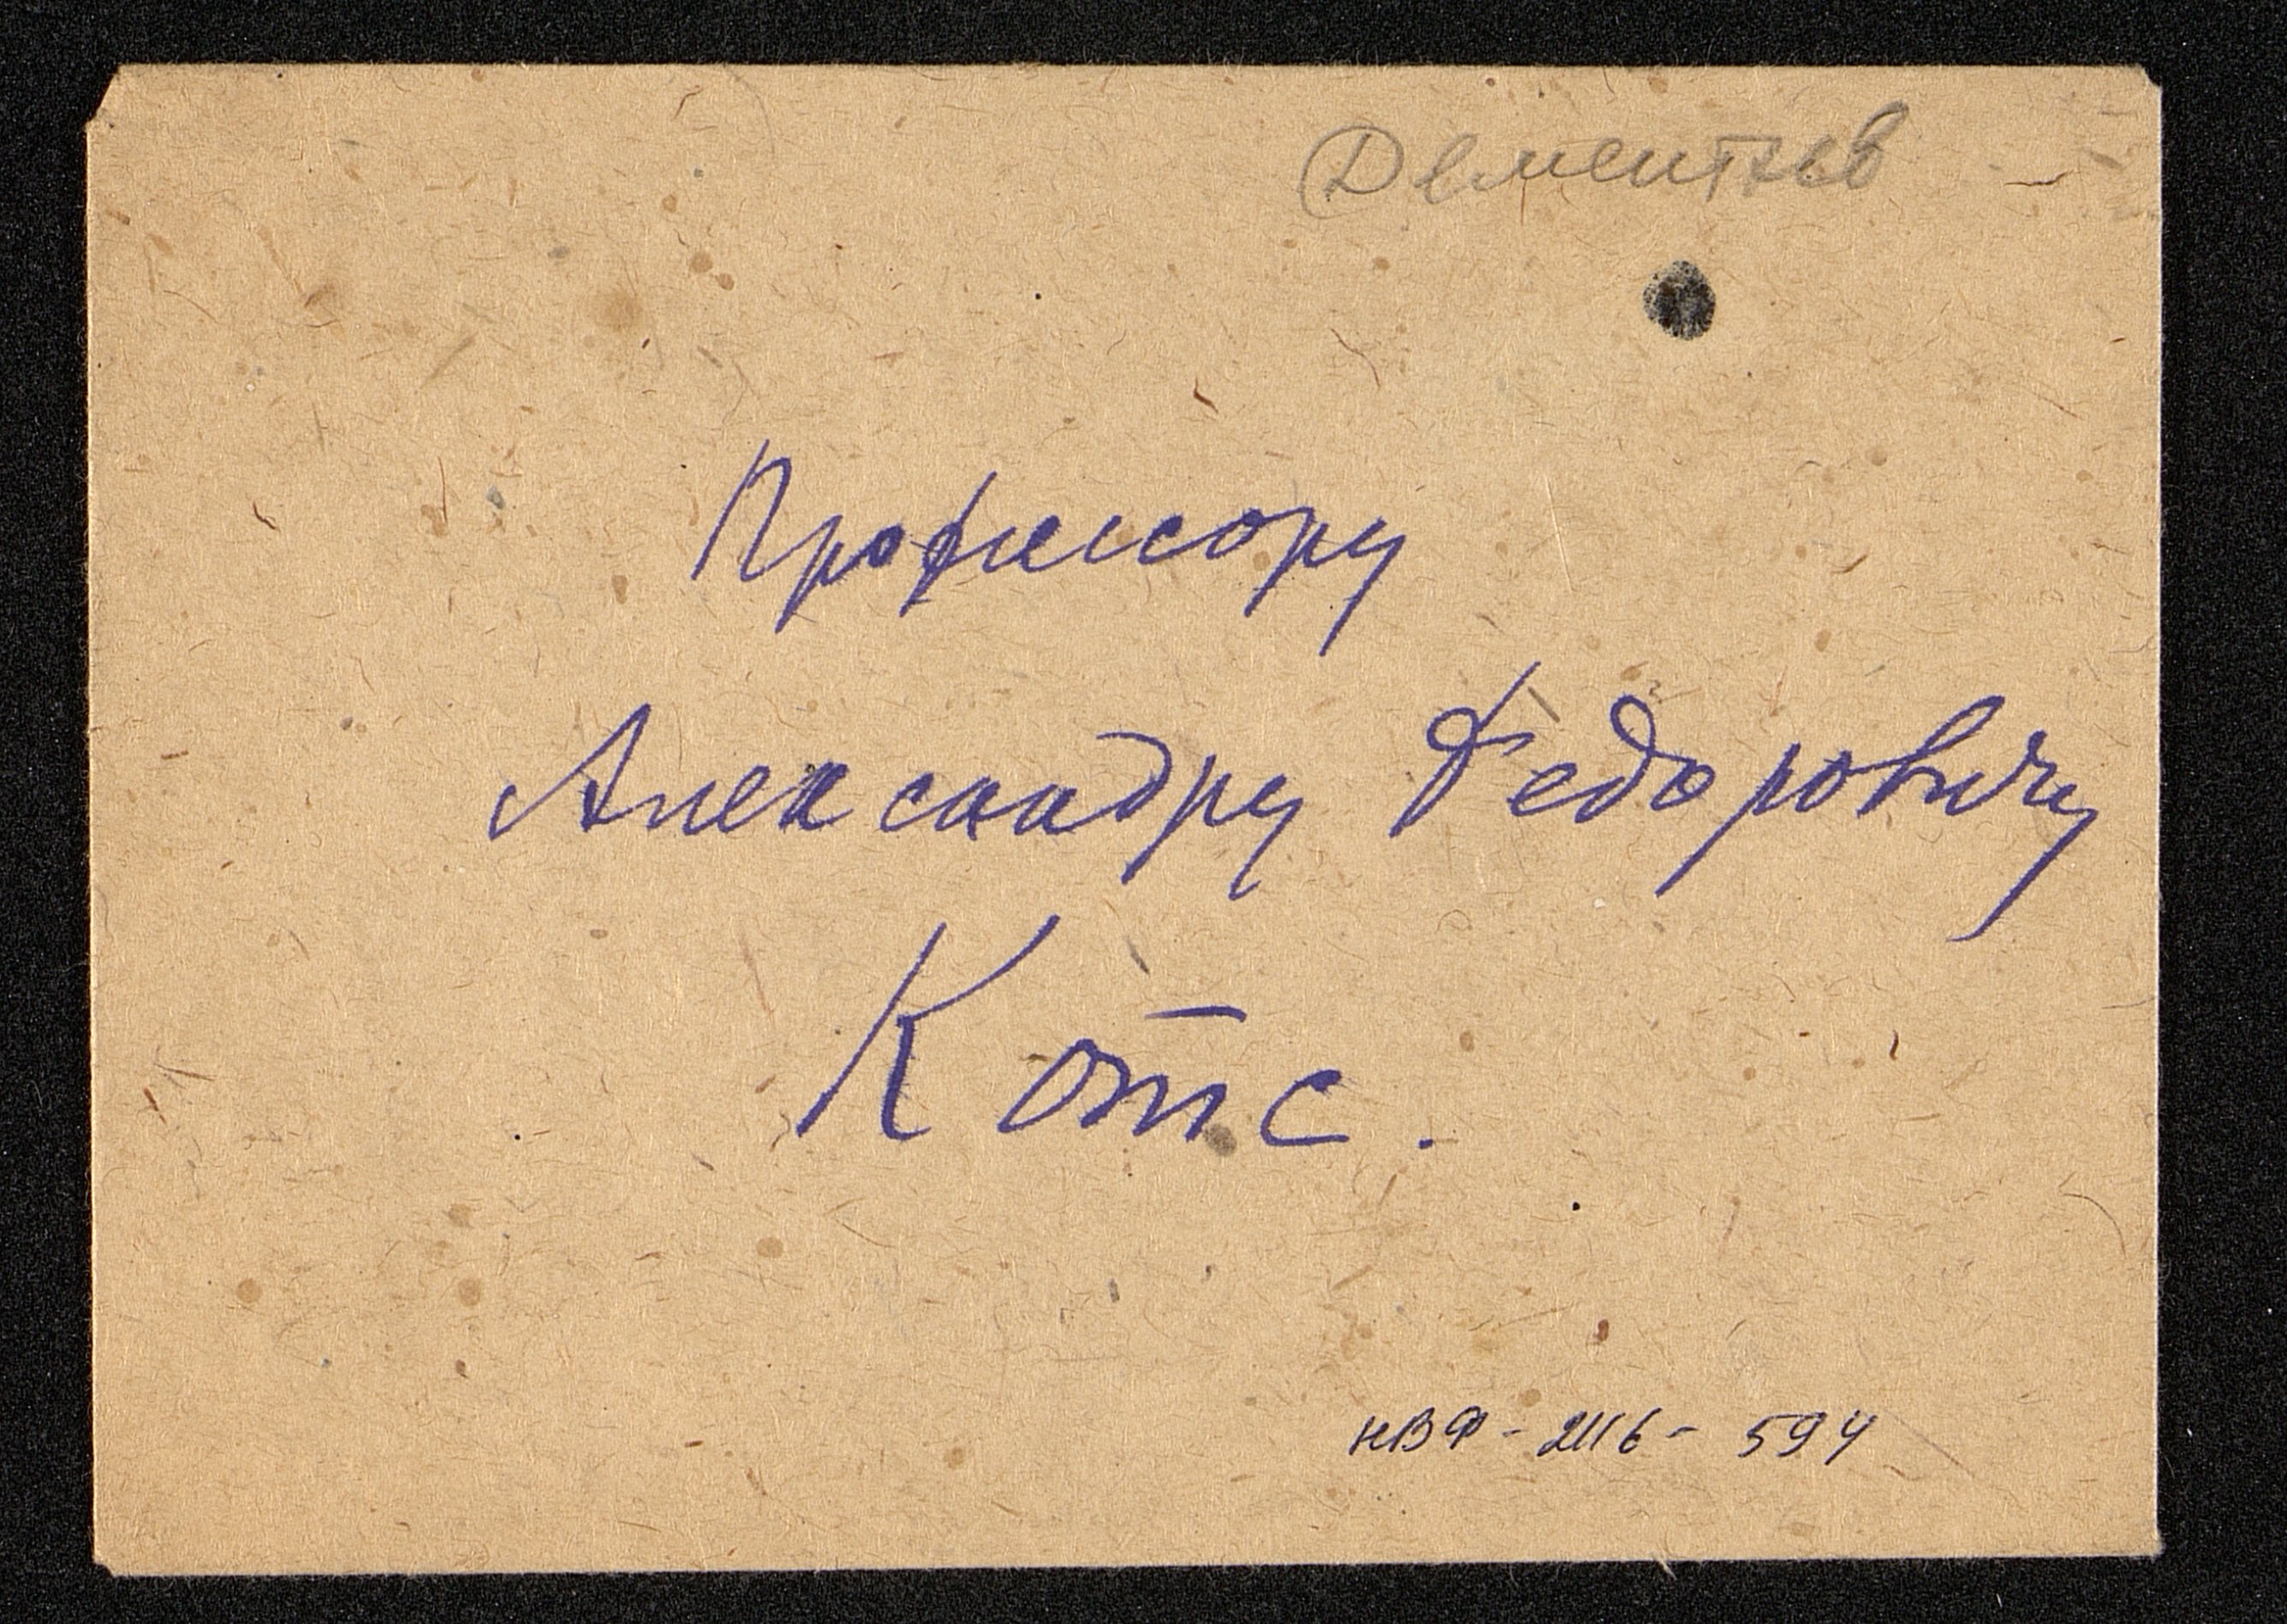 Дементьев
Профессору
Александру Федоровичу
Котс.
НВФ - 2116 - 594